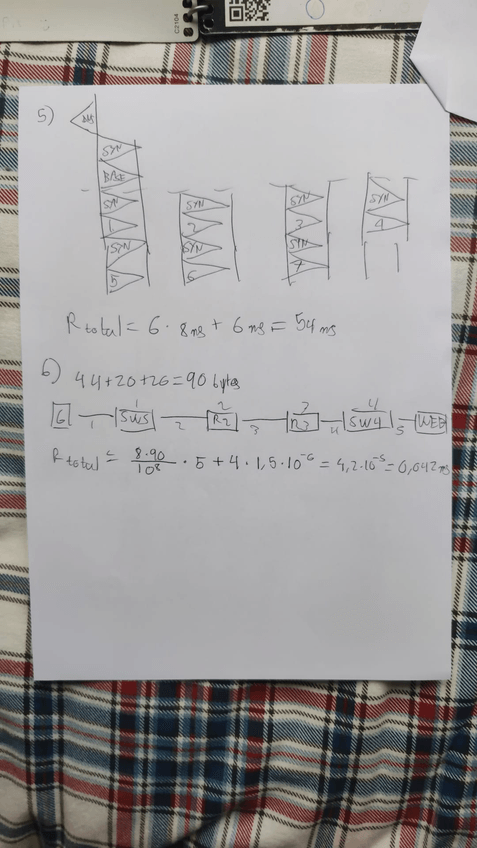 C2104
5)
DNS
SYN
BASE
SYN
1
SYN
5
SYN
2
SYN
6
SYN
3
SYN
7
SYN
4
R total = 6 · 8ms + 6 ms = 54 ms
6) 44+20+26=90 bytes
1 2 3 4
G SW5 R2 R3 SW4 WEB
1 2 3 4 5
R total = 8·90/10⁸ · 5 + 4 · 1,5·10⁻⁶ = 4,2·10⁻⁵ = 0,042 ms